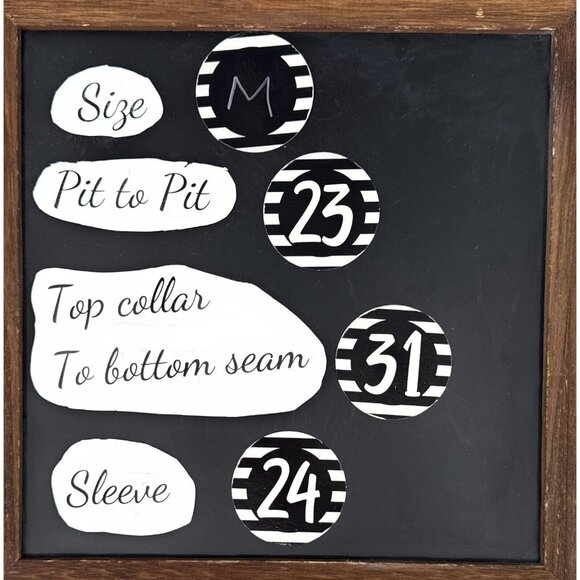 Size M
Pit to Pit 23
Top collar
To bottom seam 31
Sleeve 24